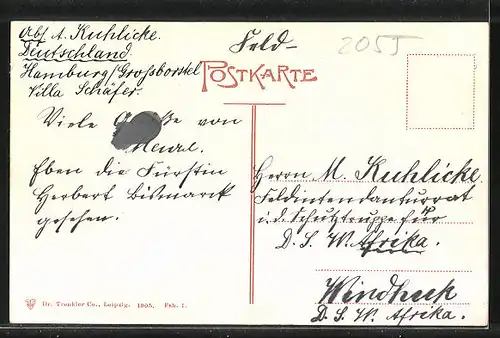 Abs. A. Kuhlicke.
Deutschland
Hamburg/Grossborstel
Villa Schäfer.
Feld-
2055
POSTKARTE
Viele von
Eben die Fürstin
Herbert Bismarck
gesehen.
Herrn M. Kuhlicke.
Feldintendanturrat
i. d. Schutztruppe für
D. S. W. Afrika.
Windheuk
D. S. W. Afrika.
Dr. Trenkler Co., Leipzig. 1905. Fsh. 1.